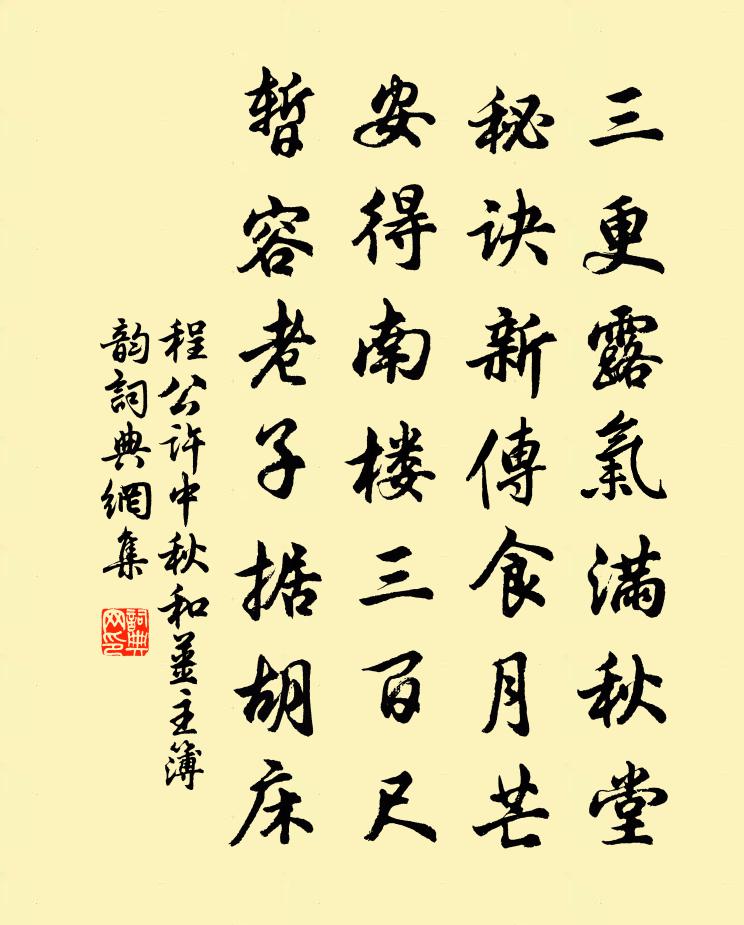 三更露氣滿秋堂
秘诀新傳食月芒
安得南楼三百尺
暫容老子据胡床
程公许中秋和薑主簿
韵詞典網集
詞典網印